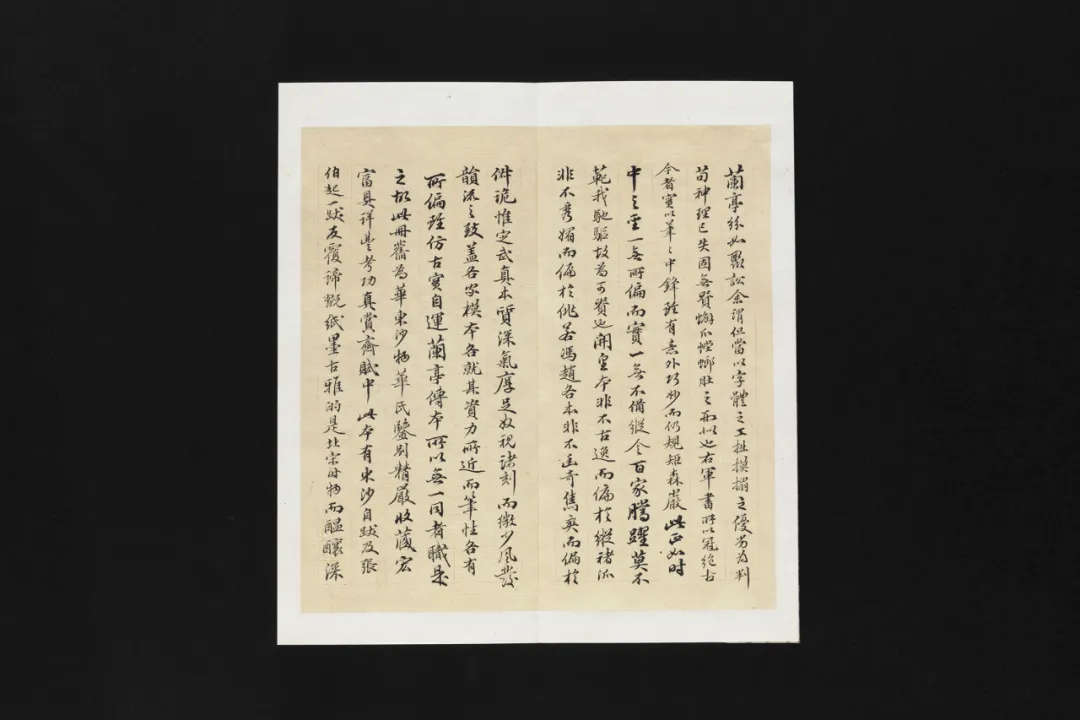 蘭亭紛如聚訟余謂但當以字體之工拙摸搨之優劣為判
苟神理已失固無貴蠏爪螳螂肚之形似也右軍書所以冠絶古
今者實以筆筆中鋒雖有意外巧妙而仍規矩森嚴此正如時
中之聖一無所偏而實一無不備縱令百家騰躍莫不
範我馳驅故為可貴也開皇本非不古逸而偏於縱褚派
非不秀媚而偏於佻若馮趙各本非不正奇雋爽而偏於
佻詭惟定武真本質深氣厚足奴視諸刻而微少風發
韻流之致蓋各家模本各就其資力所近而筆性各有
所偏雖仿古實自運蘭亭傳本所以無一同者職是
之故此冊舊為華東沙物華氏鑒别精嚴收藏宏
富具詳豐考功真賞齋賦中此本有東沙自跋及張
伯起一跋反覆諦翫紙墨古雅的是北宋時物而醞釀深